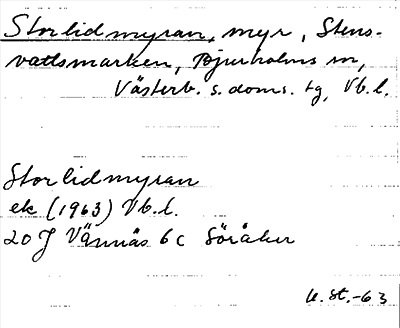 Storlidmyran, myr, Stens-
vattsmarken, Bjurholms sn,
Västerb. s. doms. tg, Vb. l.
Storlidmyran
ek (1963) Vb. l.
20 J Vännäs 6 c Söråker
U. St. -63